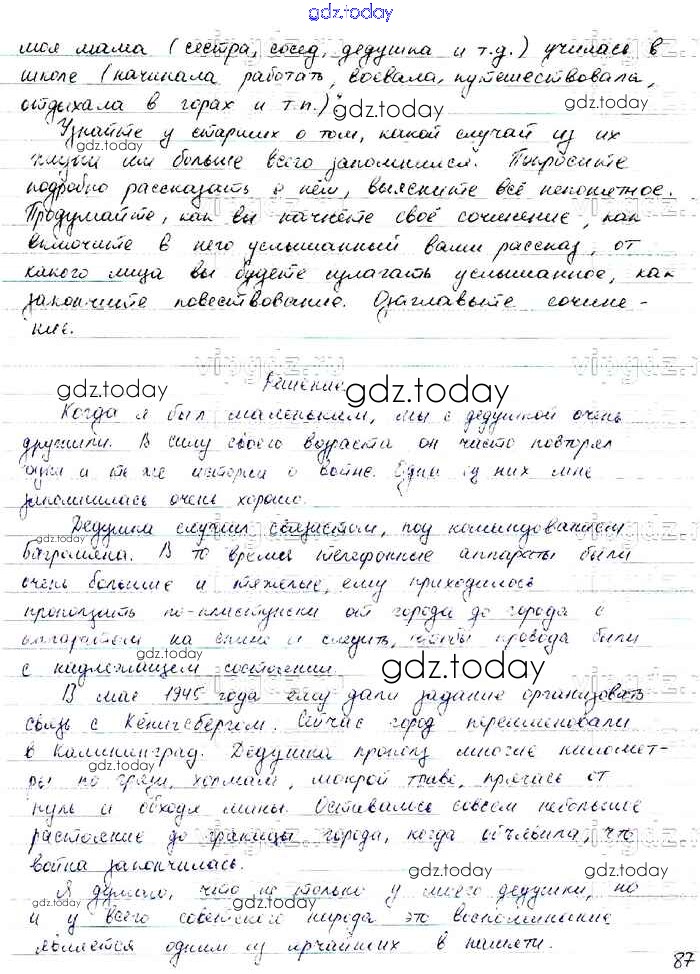 gdz.today
моя мама (сестра, сосед, дедушка и т.д.) училась в
школе (начинала работать, воевала, путешествовала,
отдыхала в горах и т.п.)"
gdz.today
Узнайте у старших о том, какой случай из их
gdz.today
жизни им больше всего запомнился. Попросите
подробно рассказать о нём, выясните всё непонятное.
Продумайте, как вы начнёте своё сочинение, как
включите в него услышанный вами рассказ, от
какого лица вы будете излагать услышанное, как
закончите повествование. Озаглавьте сочине-
ние.
vipgdz.ru
Решение.
gdz.today gdz.today gdz.today
Когда я был маленьким, мы с дедушкой очень
дружили. В силу своего возраста он часто повторял
одни и те же истории о войне. Одна из них мне
запомнилась очень хорошо.
Дедушка служил связистом, под командованием
gdz.today
Баграмяна. В то время телефонные аппараты были
очень большие и тяжелые, ему приходилось
проползать по-пластунски от города до города с
аппаратом на спине и следить, чтобы провода были
в надлежащем состоянии.
gdz.today
В мае 1945 года ему дали задание организовать
связь с Кёнигсбергом. Сейчас город переименовали
в Калининград. Дедушка прополз многие километ-
ры по грязи, холмам, мокрой траве, прячась от
пуль и обходя мины. Оставалось совсем небольшое
расстояние до границы города, когда объявили, что
война закончилась.
gdz.today gdz.today
Я думаю, что не только у моего дедушки, но
и у всего советского народа это воспоминание
gdz.today
является одним из ярчайших в памяти.
87